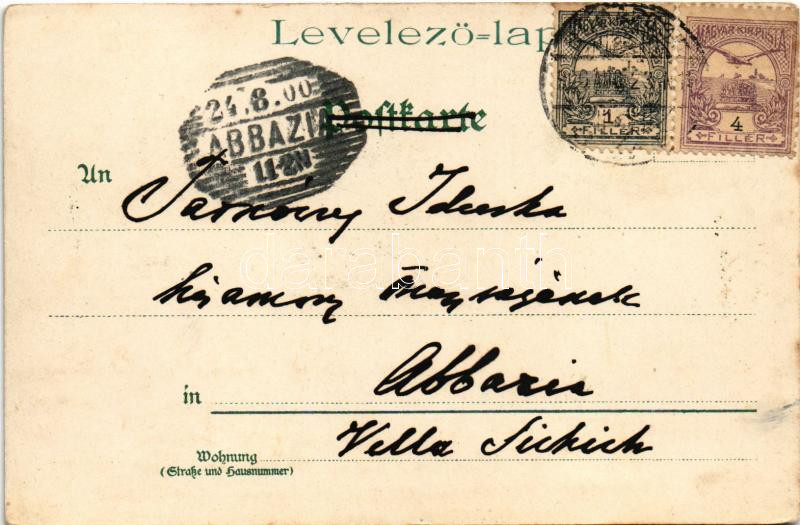 Levelező=lap
MAGYAR KIR. POSTA
1
FILLÉR
MAGYAR KIR. POSTA
4
FILLÉR
24.8.00
ABBAZIA
11-2N
Postkarte
An
Iduska
darabanth
in
Abbazia
Villa
Wohnung
(Straße und Hausnummer)